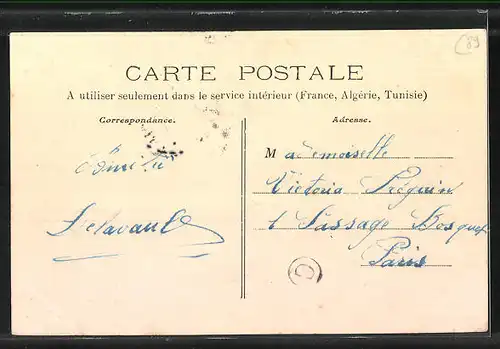 89
CARTE POSTALE
A utiliser seulement dans le service intérieur (France, Algérie, Tunisie)
Correspondance.
Adresse.
Mademoiselle
Victoria Préguin
1 Passage Bosquet
Paris
Amitié
Delavault
C